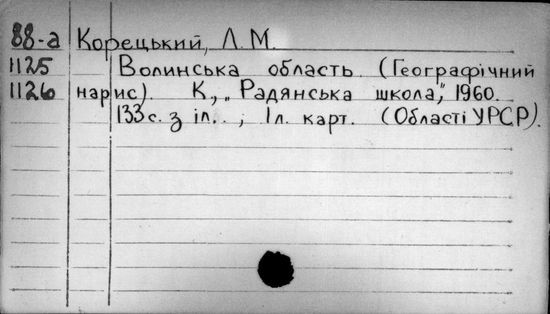 88-а Корецький, Л. М.
1125 Волинська область. (Географічний
1126 нарис). К., „Радянська школа", 1960.
133 с. з іл..; 1 л. карт. (Області УРСР).